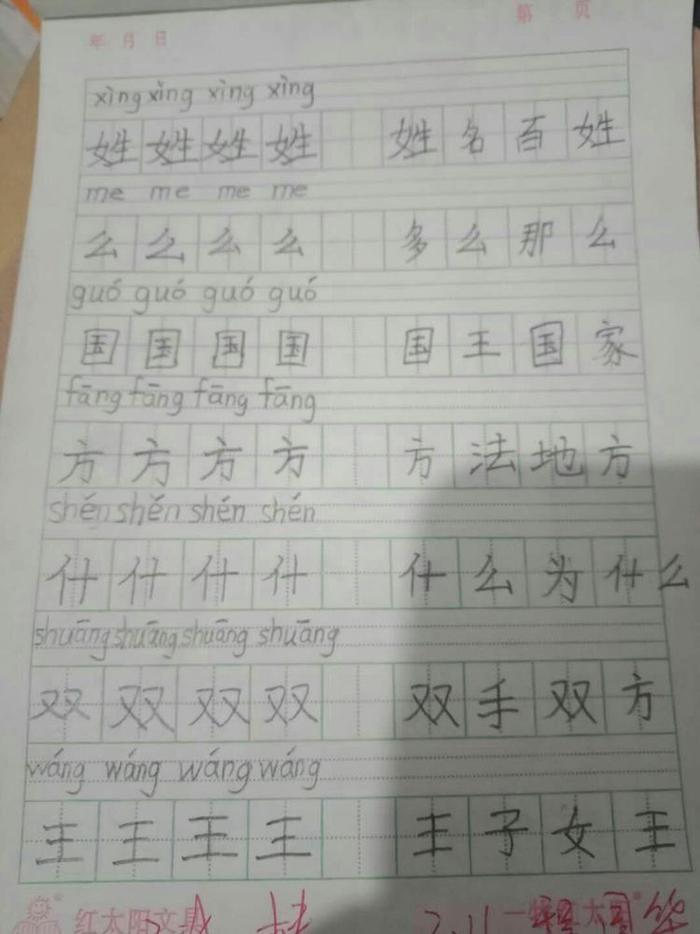 第 页
年 月 日
xìng xìng xìng xìng
姓 姓 姓 姓 姓 名 百 姓
me me me me
么 么 么 么 多 么 那 么
guó guó guó guó
国 国 国 国 国 王 国 家
fāng fāng fāng fāng
方 方 方 方 方 法 地 方
shén shén shén shén
什 什 什 什 什 么 为 什 么
shuāng shuāng shuāng shuāng
双 双 双 双 双 手 双 方
wáng wáng wáng wáng
王 王 王 王 王 子 女 王
红太阳文具